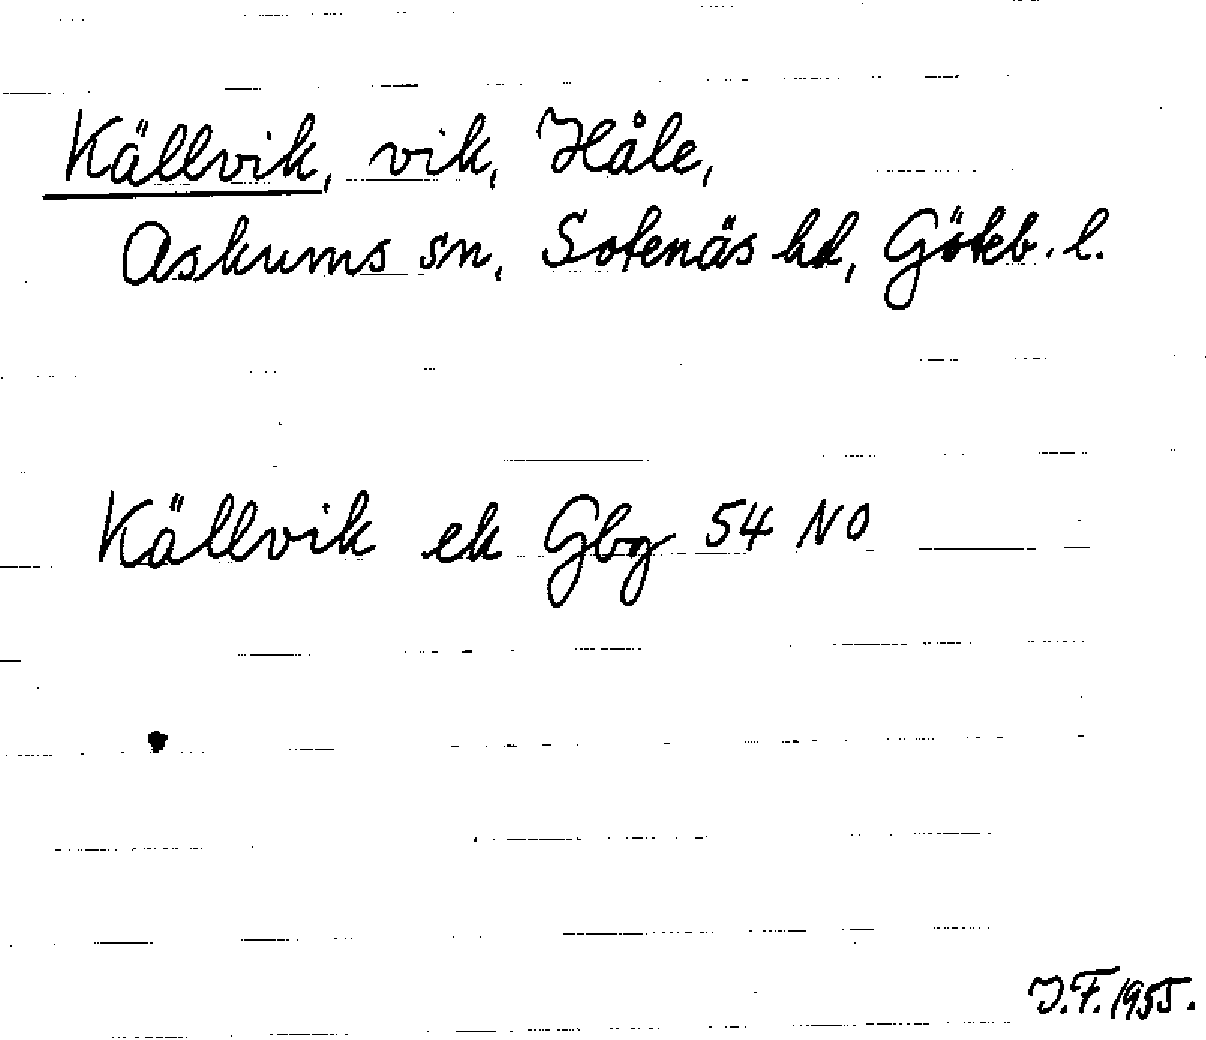 Källvik, vik, Håle,
Askums sn, Sotenäs hd, Göteb. l.
Källvik ek Gbg 54 NO
J.F. 1955.